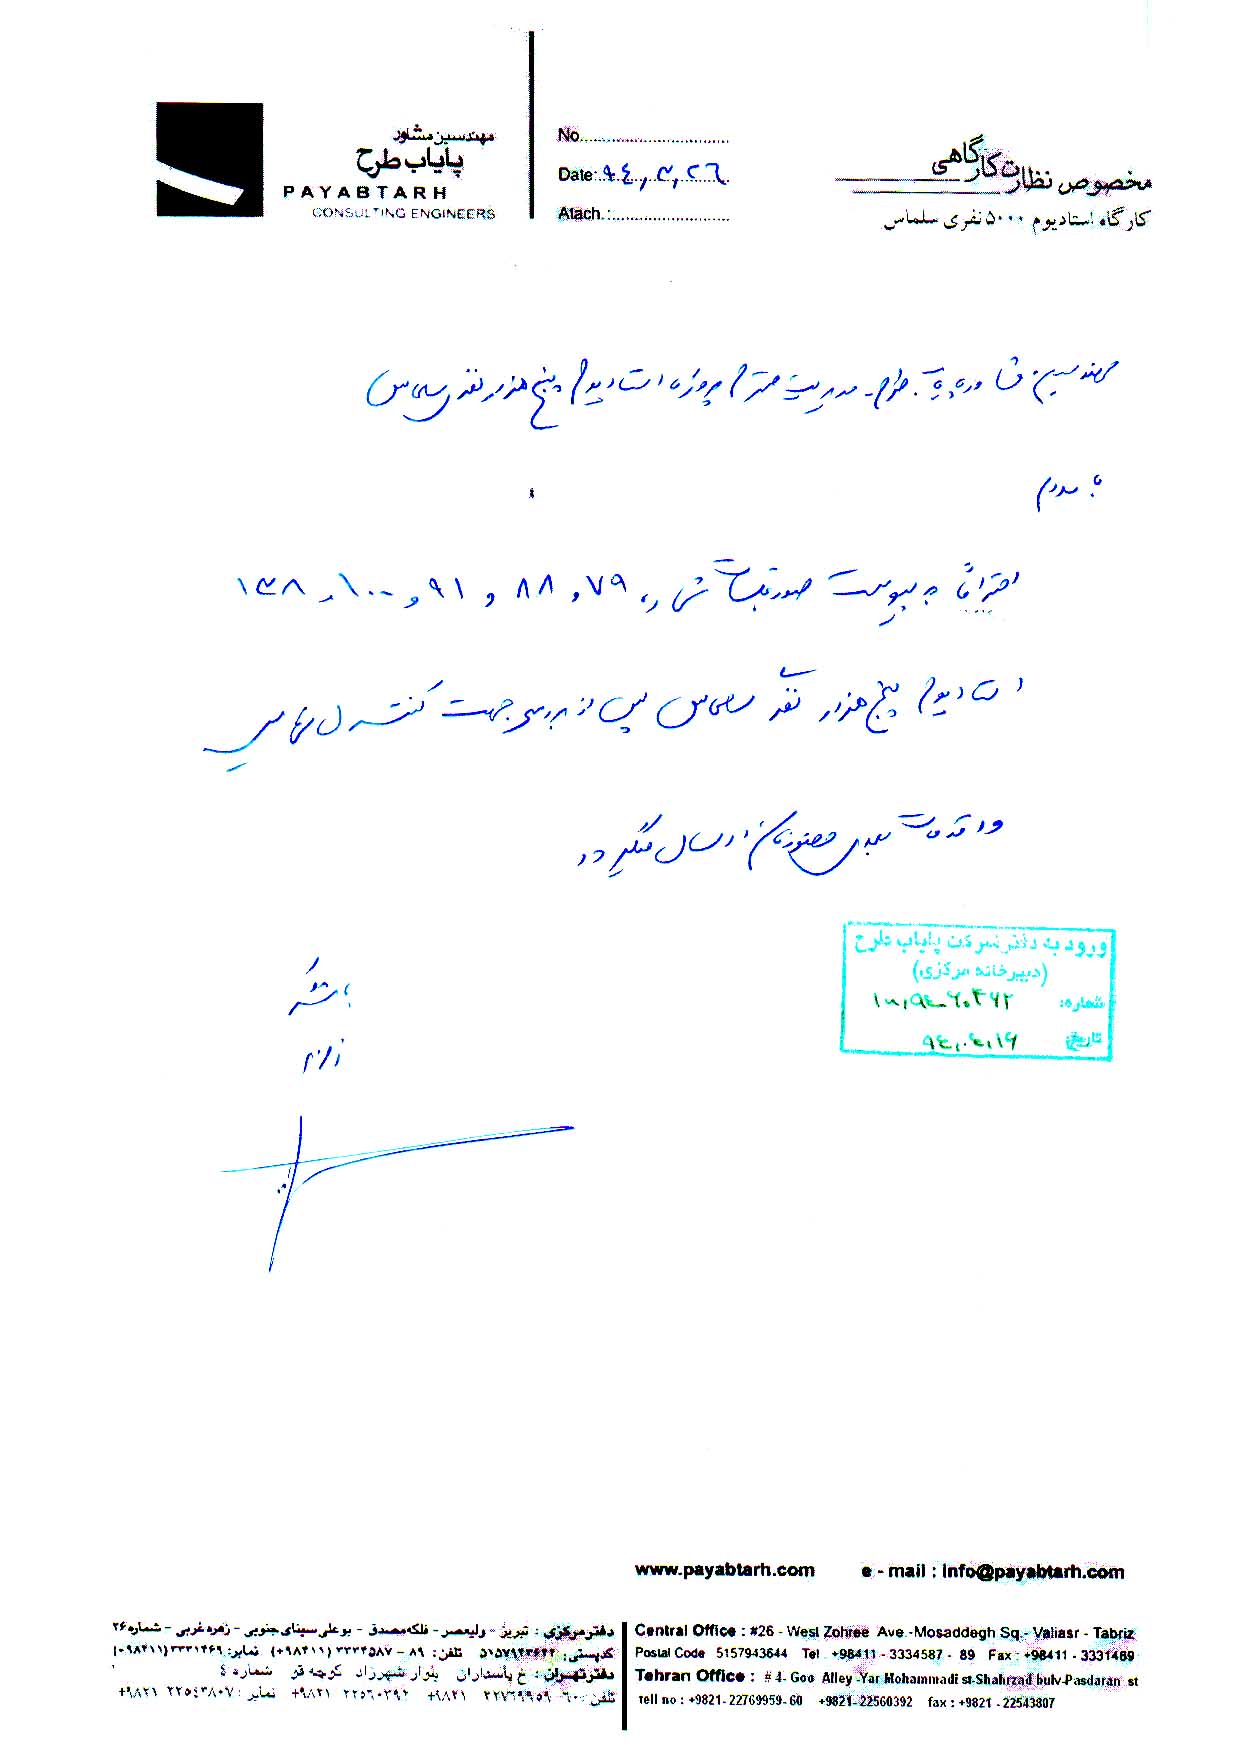 مهندسین مشاور
پایاب طرح
PAYABTARH
CONSULTING ENGINEERS
No.............................
Date:..۹٤,۳,۲٦..
Atach.:...........................
مخصوص نظارت کارگاهی
کارگاه استادیوم ۵۰۰۰ نفری سلماس
مهندسین مشاور پایاب طرح - مدیریت محترم پروژه استادیوم پنج هزار نفری سلماس
با سلام
احتراماً به پیوست صورتجلسات شماره ۷۹ و ۸۸ و ۹۱ و ۱۰۰ و ۱۳۸
استادیوم پنج هزار نفری سلماس پس از بررسی جهت کنترل نهایی
و اقدامات بعدی حضورتان ارسال میگردد.
با تشکر
ورود به دفتر شرکت پایاب طرح
(دبیرخانه مرکزی)
شماره:
تاریخ: ۹٤,۰٤,۱۶
www.payabtarh.com e - mail : info@payabtarh.com
دفتر مرکزی : تبریز - ولیعصر - فلکه مصدق - بوعلی سینای جنوبی - زهره غربی - شماره ۲۶
کدپستی: ۵۱۵۷۹۴۳۶۴۴ تلفن: ۸۹ - ۳۳۳۴۵۸۷ (۰۹۸۴۱۱) نمابر: ۳۳۳۱۴۶۹ (۰۹۸۴۱۱)
دفتر تهران : خ پاسداران بلوار شهرزاد کوچه قو شماره ٤
تلفن : ۶۰ - ۲۲۷۶۹۹۵۹ ۹۸۲۱+ ۲۲۵۶۰۳۹۲ ۹۸۲۱+ نمابر : ۲۲۵٤۳۸۰۷ ۹۸۲۱+
Central Office : #26 - West Zohree Ave.-Mosaddegh Sq.- Valiasr - Tabriz
Postal Code 5157943644 Tel +98411 - 3334587 - 89 Fax : +98411 - 3331469
Tehran Office : # 4- Goo Alley -Yar Mohammadi st-Shahrzad bulv-Pasdaran st
tell no : +9821- 22769959- 60 +9821- 22560392 fax : +9821 - 22543807